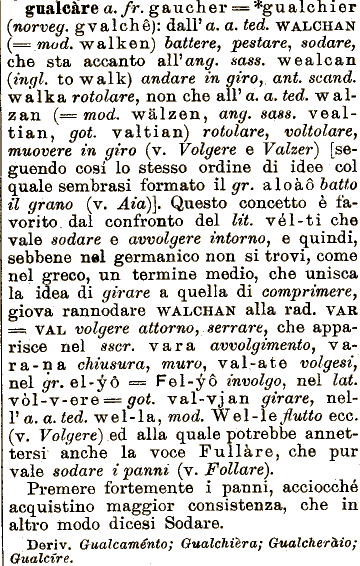 gualcàre a. fr. gaucher = *gualchier
(norveg. gvalchê): dall' a. a. ted. WALCHAN
(= mod. walken) battere, pestare, sodare,
che sta accanto all'ang. sass. wealcan
(ingl. to walk) andare in giro, ant. scand.
walka rotolare, non che all' a. a. ted. wal-
zan (= mod. wälzen, ang. sass. veal-
tian, got. valtian) rotolare, voltolare,
muovere in giro (v. Volgere e Valzer) [se-
guendo così lo stesso ordine di idee col
quale sembrasi formato il gr. aloàô batto
il grano (v. Aia)]. Questo concetto è fa-
vorito dal confronto del lit. vél-ti che
vale sodare e avvolgere intorno, e quindi,
sebbene nel germanico non si trovi, come
nel greco, un termine medio, che unisca
la idea di girare a quella di comprimere,
giova rannodare WALCHAN alla rad. VAR
= VAL volgere attorno, serrare, che appa-
risce nel sscr. vara avvolgimento, va-
ra-ṇa chiusura, muro, val-ate volgesi,
nel gr. el-ýô = Fel-ýô involgo, nel lat.
vòl-v-ere = got. val-vjan girare, nel-
l' a. a. ted. wel-la, mod. Wel-le flutto ecc.
(v. Volgere) ed alla quale potrebbe annet-
tersi anche la voce Fullàre, che pur
vale sodare i panni (v. Follare).
Premere fortemente i panni, acciocchè
acquistino maggior consistenza, che in
altro modo dicesi Sodare.
Deriv. Gualcaménto; Gualchièra; Gualcheràio;
Gualcìre.